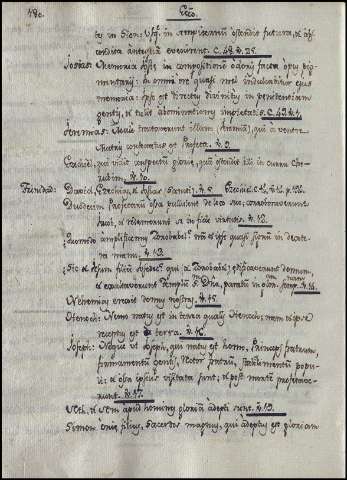 480. Ecc.o
tes in Sion: Usq. in sempiternum ostendit futura, et abscondita antequam evenirent. C. 48. v. 25.
Josias: Memoria Josiæ in compositionem odoris facta opus pigmentarij: in omni ore quasi mel indulcabitur ejus memoria: Ipse est directus divinitus in penitentiam gentis, et tulit abominationes impietatis. C. 49. v. 1.
Jeremias: Male tractaverunt illum, qui a ventre Matris consecratus est Propheta. v. 9.
Ezechiel, qui vidit conspectum gloriæ, quam ostendit illi in curru Cherubim. v. 10.
David, Ezechias, et Josias v. 5.
Duodecim Prophetarum ossa pullulent de loco suo, corroboraverunt Jacob, et redemerunt se in fide virtutis. v. 12.
Quomodo amplificemus Zorobabel? nam et ipse quasi signum in dextera manu. v. 13.
Sic et Jesum filium Josedec? qui in ædificaverunt domum, et exaltaverunt templum S. Dno, paratum in gloriam v. 14.
Nehemias erexit domos nostras. v. 15.
Henoch: Nemo natus est in terra qualis Henoch: nam et ipse receptus est a terra. v. 16.
Joseph: Neque ut Joseph, qui natus est homo, Princeps fratrum, firmamentum gentis, Rector fratrum, stabilimentum populi: et ossa ipsius visitata sunt; et post mortem prophetaverunt. v. 17.
Seth, et Sem apud homines gloriam adepti sunt. v. 19.
Simon Oniæ filius, Sacerdos magnus, qui adeptus est gloriam